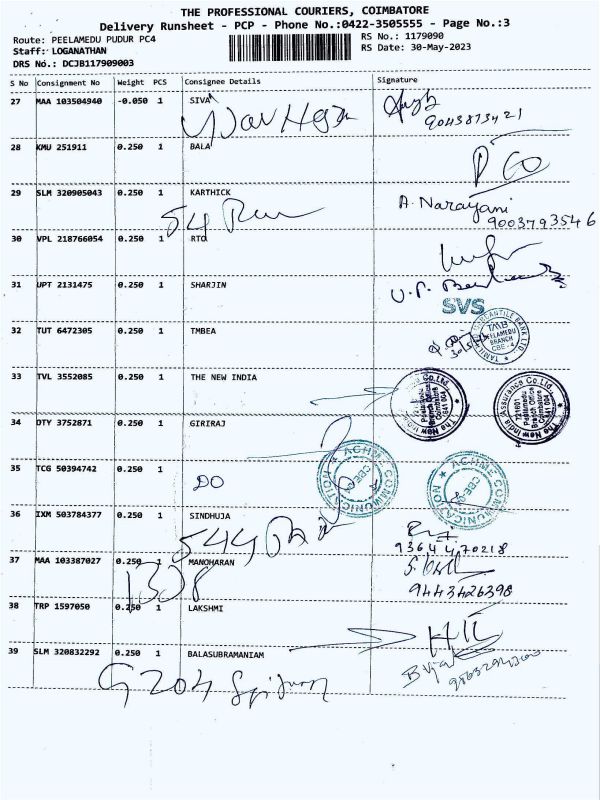 THE PROFESSIONAL COURIERS, COIMBATORE
Delivery Runsheet - PCP - Phone No.:0422-3505555 - Page No.:3
Route: PEELAMEDU PUDUR PC4 RS No.: 1179090
Staff: LOGANATHAN RS Date: 30-May-2023
DRS No.: DCJB117909003
S No Consignment No Weight PCS Consignee Details Signature
27 MAA 103504940 -0.050 1 SIVA
9043873421
28 KMU 251911 0.250 1 BALA
29 SLM 320905043 0.250 1 KARTHICK
A. Narayani
9003793546
54
30 VPL 218766054 0.250 1 RTO
31 UPT 2131475 0.250 1 SHARJIN
SVS
32 TUT 6472305 0.250 1 TMBEA
TAMILNAD MERCANTILE BANK LTD.
TMB
PEELAMEDU
BRANCH
CBE - 4
33 TVL 3552085 0.250 1 THE NEW INDIA
The New India Assurance Co.Ltd.
721601
Peelamedu
Branch Office
Coimbatore
641 004
The New India Assurance Co.Ltd.
721601
Peelamedu
Branch Office
Coimbatore
641 004
34 DTY 3752871 0.250 1 GIRIRAJ
35 TCG 50394742 0.250 1
DO
ACHME COMMUNICATION
CBE
ACHME COMMUNICATION
CBE
36 IXM 503784377 0.250 1 SINDHUJA
544
9364470218
37 MAA 103387027 0.250 1 MANOHARAN
1308
9443426398
38 TRP 1597050 0.250 1 LAKSHMI
39 SLM 320832292 0.250 1 BALASUBRAMANIAM
G204